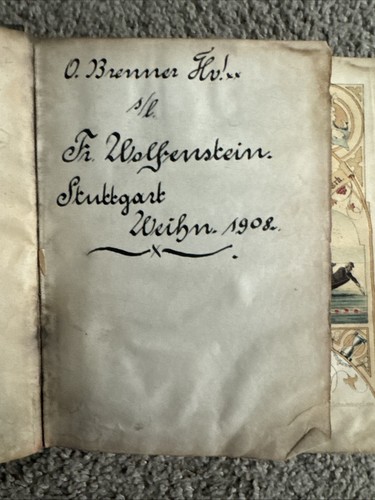 O. Brenner Hv! xx
s/l.
Fr. Wolfenstein.
Stuttgart
Weihn. 1908.
x